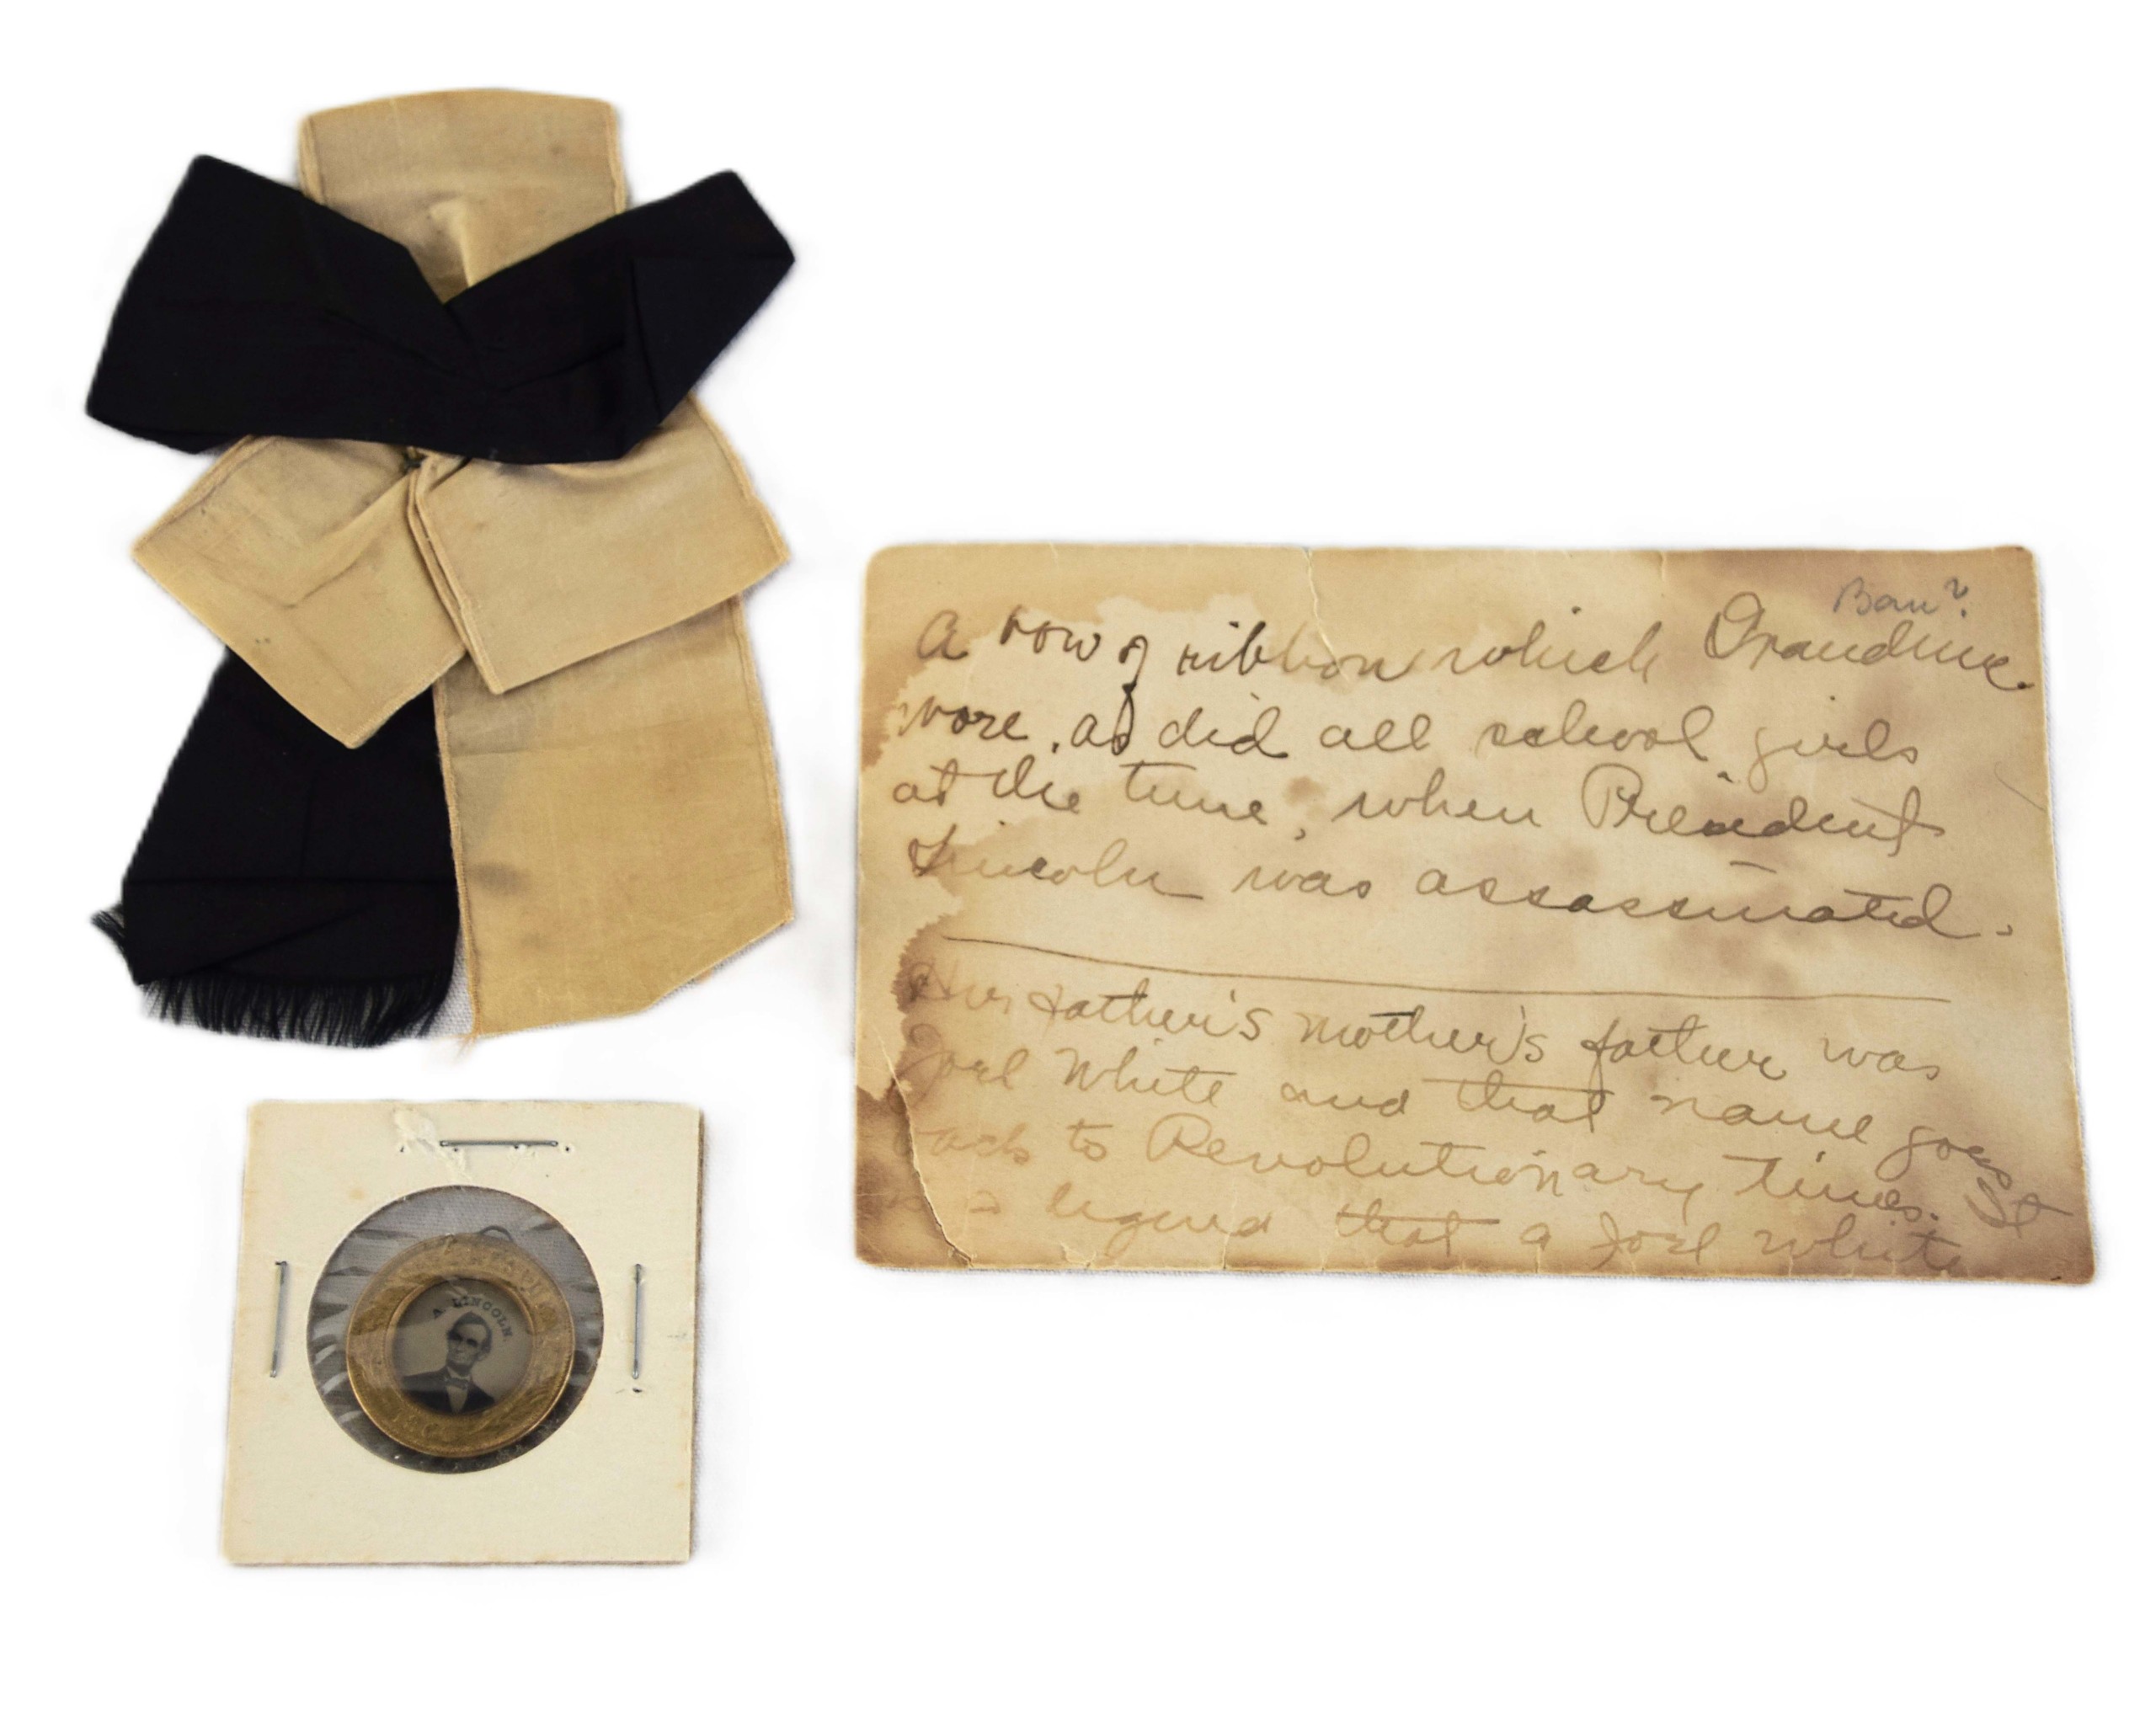 Bow?
A bow of ribbon which Grandma
wore, as did all school girls
at the time, when President
Lincoln was assassinated.
Her father's mother's father was
Joel White and that name goes
back to Revolutionary times. It
is a legend that a Joel White
A LINCOLN